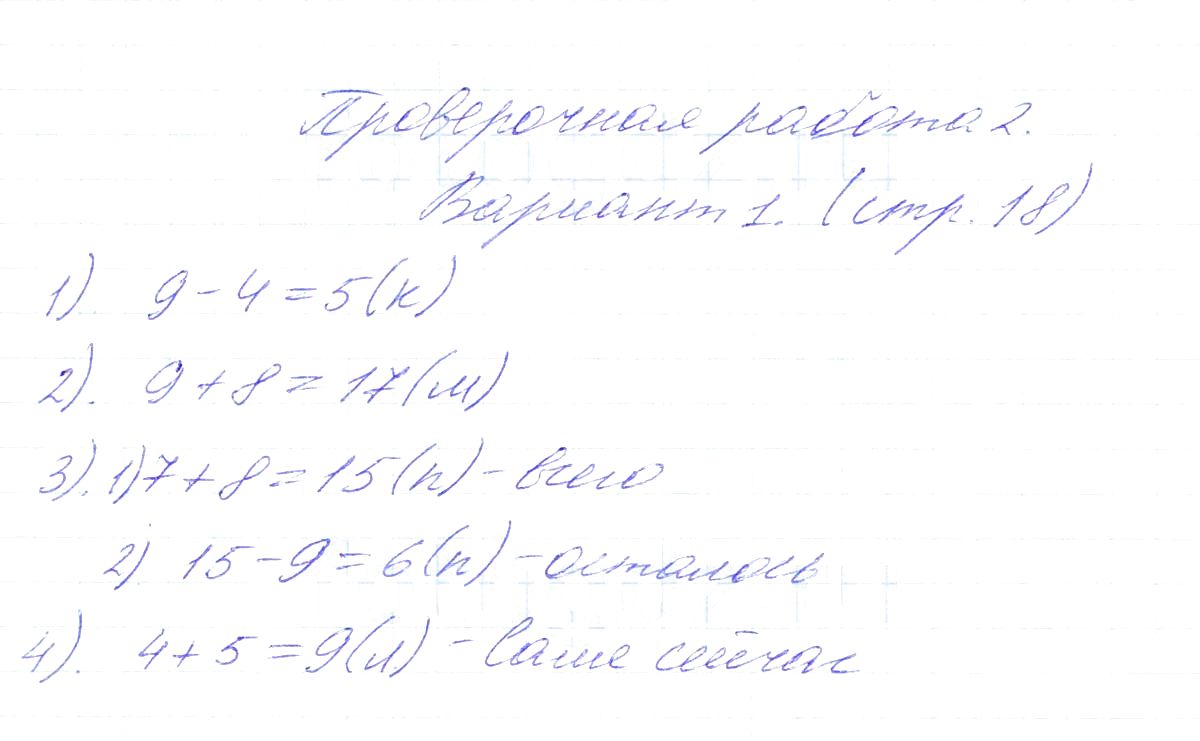 Проверочная работа 2.
Вариант 1. (стр. 18)
1). 9 - 4 = 5 (к)
2). 9 + 8 = 17 (м)
3). 1) 7 + 8 = 15 (п) - всего
2) 15 - 9 = 6 (п) - осталось
4). 4 + 5 = 9 (л) - Саше сейчас